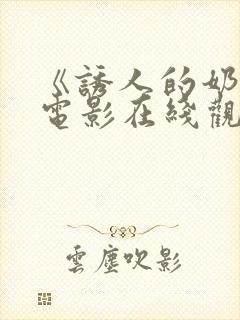 《誘人的奶
電影在綫觀
雲塵吹影